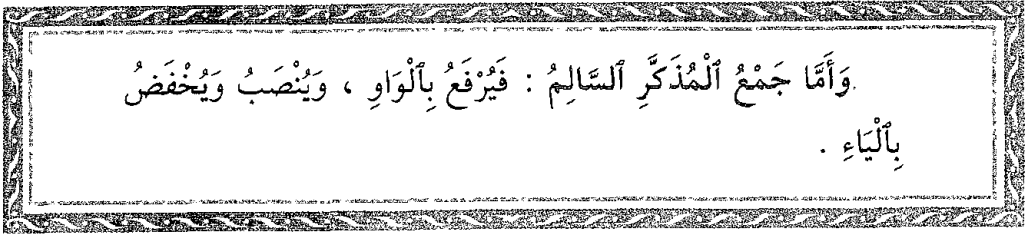 وَأَمَّا جَمْعُ ٱلْمُذَكَّرِ ٱلسَّالِمُ : فَيُرْفَعُ بِٱلْوَاوِ ، وَيُنْصَبُ وَيُخْفَضُ
بِٱلْيَاءِ .